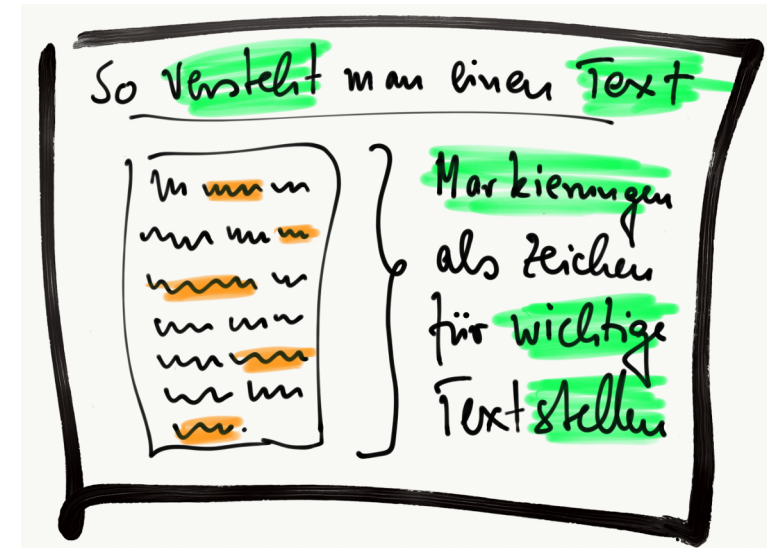 So versteht man einen Text
Markierungen
als Zeichen
für wichtige
Textstellen